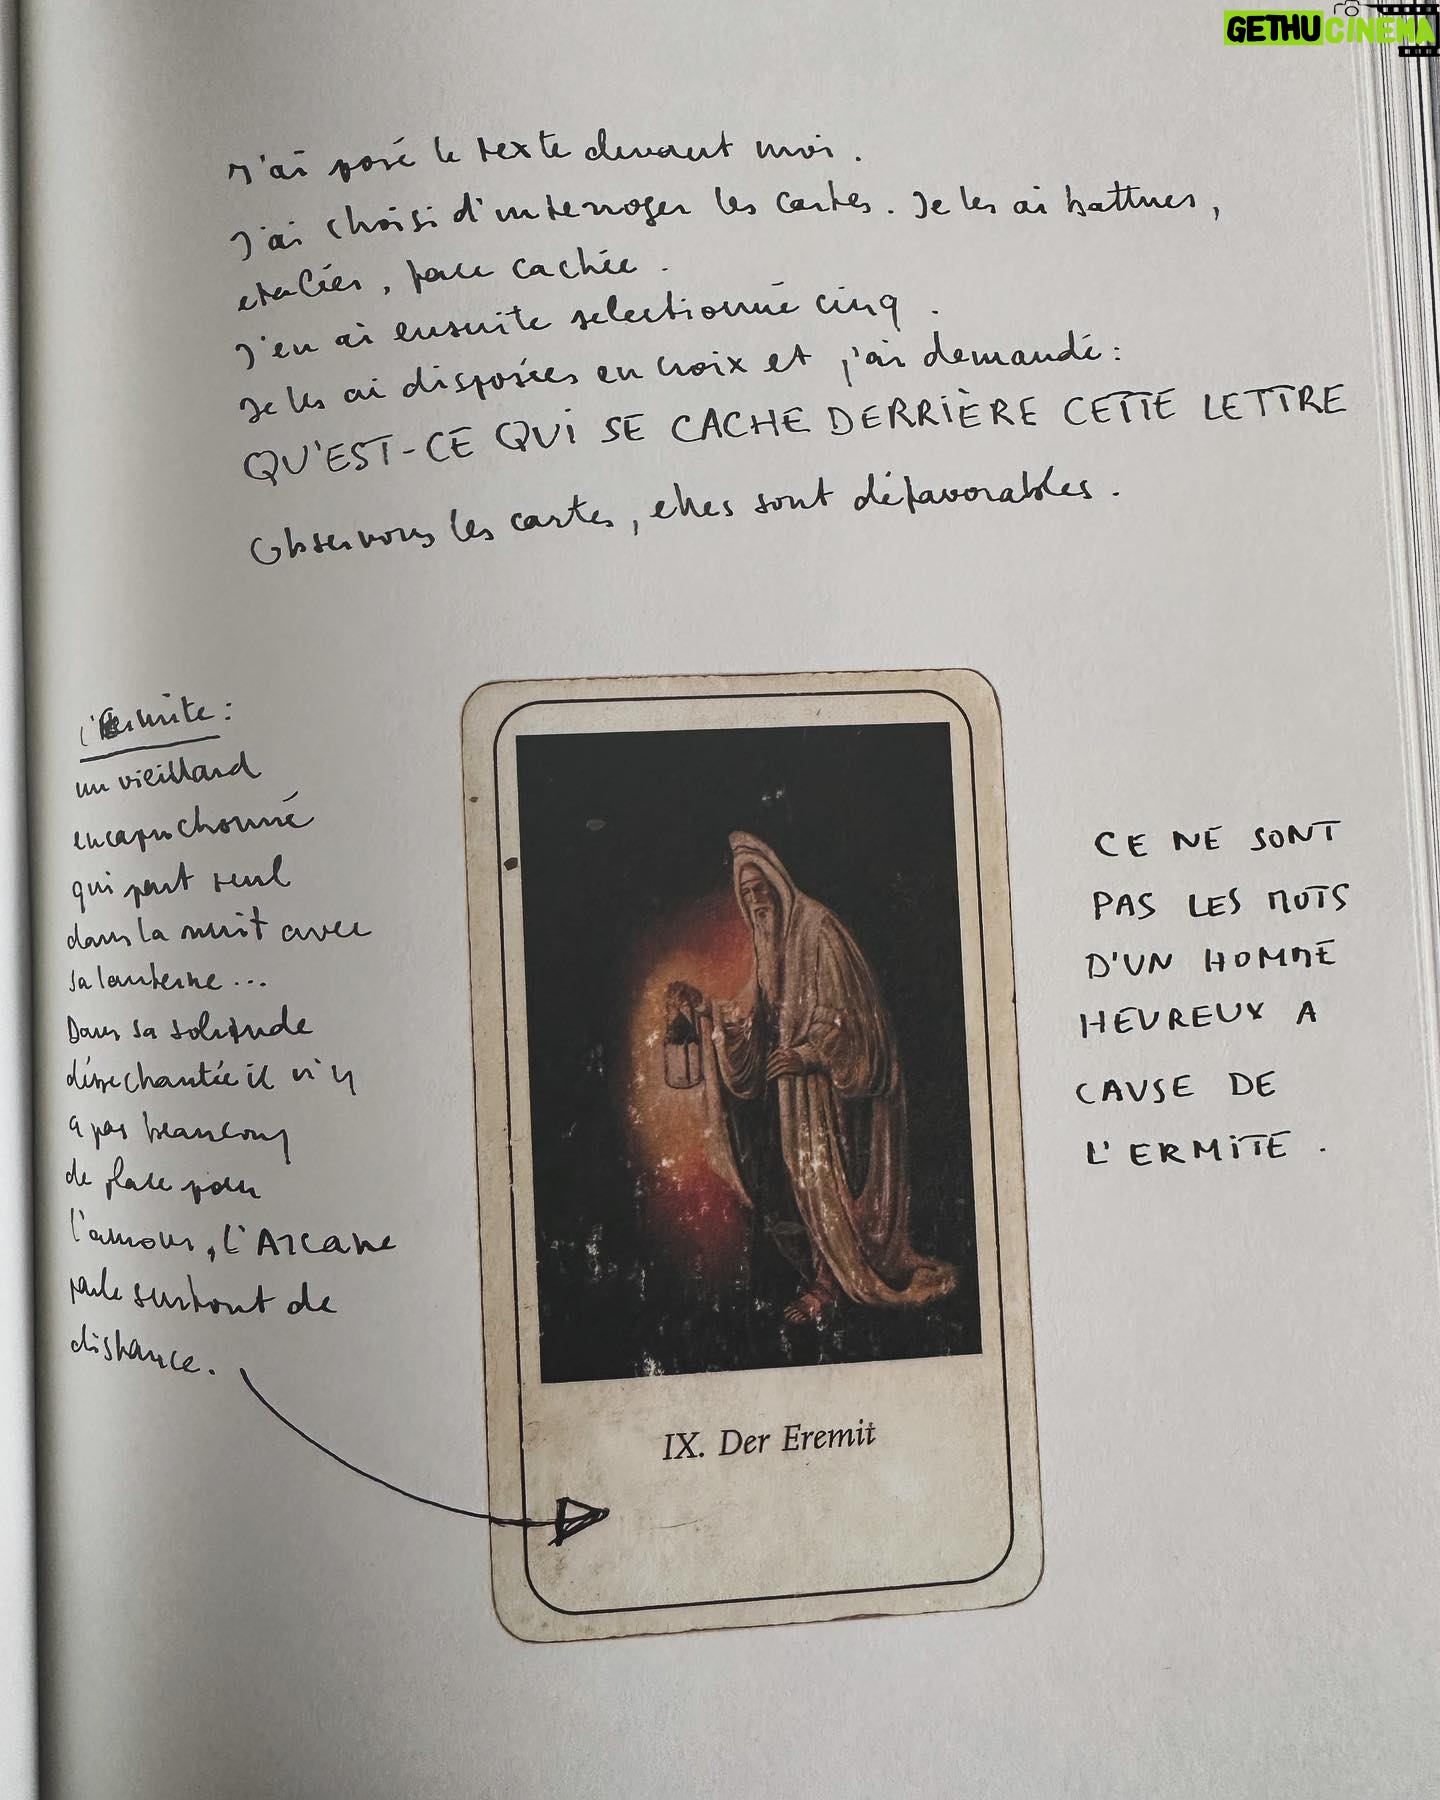 GETHUCINEMA
J'ai posé le texte devant moi.
J'ai choisi d'interroger les cartes. Je les ai battues,
etalées, face cachée.
J'en ai ensuite selectionné cinq.
Je les ai disposées en croix et j'ai demandé:
QU'EST-CE QUI SE CACHE DERRIÈRE CETTE LETTRE
Observons les cartes, elles sont défavorables.
L'Ermite:
un vieillard
encapuchonné
qui part seul
dans la nuit avec
sa lanterne...
Dans sa solitude
désenchantée il n'y
a pas beaucoup
de place pour
l'amour, l'Arcane
parle surtout de
distance.
CE NE SONT
PAS LES MOTS
D'UN HOMME
HEUREUX A
CAUSE DE
L'ERMITE.
IX. Der Eremit